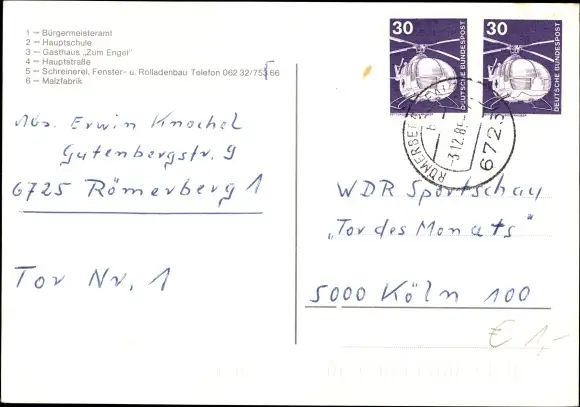 1 – Bürgermeisteramt
2 – Hauptschule
3 – Gasthaus „Zum Engel"
4 – Hauptstraße
5 – Schreinerei, Fenster- u. Rolladenbau Telefon 062 32/75366
6 – Malzfabrik
Abs. Erwin Knochel
Gutenbergstr. 9
6725 Römerberg 1
Tor Nr. 1
30
DEUTSCHE BUNDESPOST
30
DEUTSCHE BUNDESPOST
RÖMERBERG
-3.12.8
6725
WDR Sportschau
„Tor des Monats"
5000 Köln 100
€ 1,-